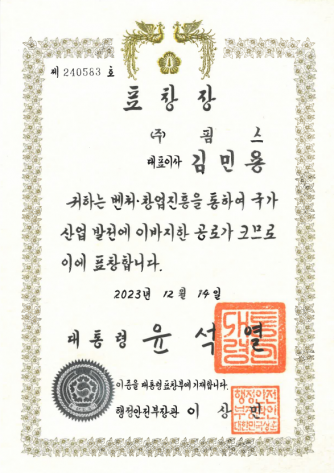 제 240583 호
표창장
(주) 펌스
대표이사 김민용
귀하는 벤처·창업진흥을 통하여 국가
산업 발전에 이바지한 공로가 크므로
이에 표창합니다.
2023년 12월 14일
대통령 윤석열
이 증을 대통령표창부에 기재합니다.
행정안전부장관 이상민